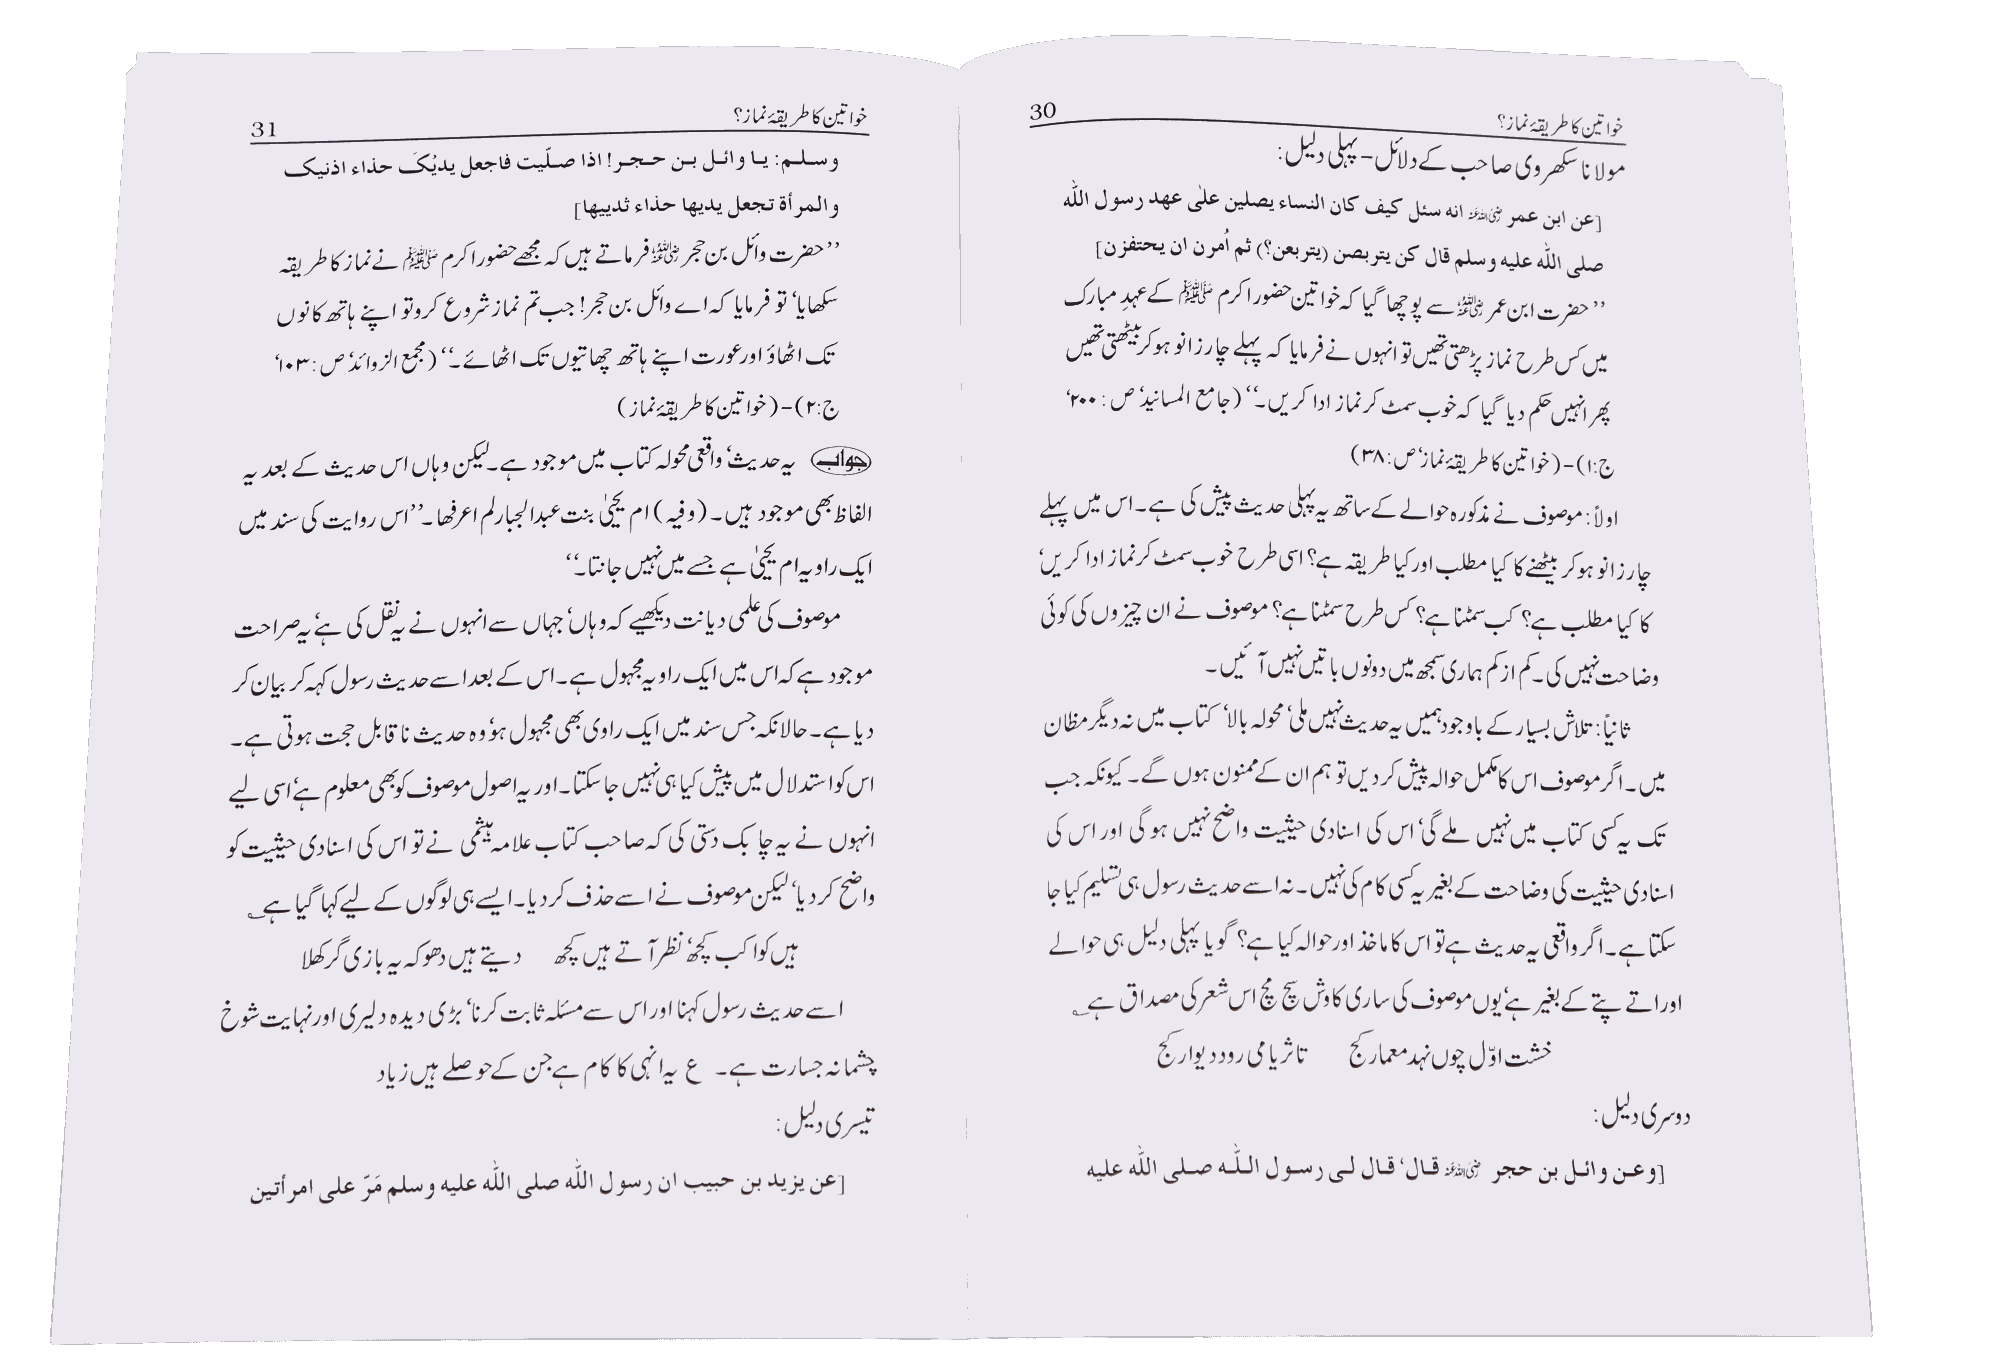 خواتین کا طریقۂ نماز؟ 30
مولانا سکھروی صاحب کے دلائل – پہلی دلیل:
[عن ابن عمر رضی اللہ عنہ انه سئل كيف كان النساء يصلين علىٰ عهد رسول اللّٰه
صلى اللّٰه عليه وسلم قال كن يتربصن (يتربعن؟) ثم اُمرن ان يحتفزن]
’’حضرت ابن عمر رضی اللہ عنہ سے پوچھا گیا کہ خواتین حضور اکرم ﷺ کے عہدِ مبارک
میں کس طرح نماز پڑھتی تھیں تو انہوں نے فرمایا کہ پہلے چار زانو ہو کر بیٹھتی تھیں
پھر انہیں حکم دیا گیا کہ خوب سمٹ کر نماز ادا کریں۔‘‘ (جامع المسانید‘ ص: ۲۰۰‘
ج:۱)-(خواتین کا طریقۂ نماز‘ ص:۳۸)
اولاً: موصوف نے مذکورہ حوالے کے ساتھ یہ پہلی حدیث پیش کی ہے۔ اس میں پہلے
چار زانو ہو کر بیٹھنے کا کیا مطلب اور کیا طریقہ ہے؟ اسی طرح خوب سمٹ کر نماز ادا کریں‘
کا کیا مطلب ہے؟ کب سمٹنا ہے؟ کس طرح سمٹنا ہے؟ موصوف نے ان چیزوں کی کوئی
وضاحت نہیں کی۔ کم از کم ہماری سمجھ میں دونوں باتیں نہیں آئیں۔
ثانیاً: تلاش بسیار کے باوجود ہمیں یہ حدیث نہیں ملی‘ محولہ بالا‘ کتاب میں نہ دیگر مظان
میں۔ اگر موصوف اس کا مکمل حوالہ پیش کر دیں تو ہم ان کے ممنون ہوں گے۔ کیونکہ جب
تک یہ کسی کتاب میں نہیں ملے گی‘ اس کی اسنادی حیثیت واضح نہیں ہو گی اور اس کی
اسنادی حیثیت کی وضاحت کے بغیر یہ کسی کام کی نہیں۔ نہ اسے حدیث رسول ہی تسلیم کیا جا
سکتا ہے۔ اگر واقعی یہ حدیث ہے تو اس کا ماخذ اور حوالہ کیا ہے؟ گویا پہلی دلیل ہی حوالے
اور اتے پتے کے بغیر ہے‘ یوں موصوف کی ساری کاوش سچ مچ اس شعر کی مصداق ہے؎
خشت اوّل چوں نہد معمار کج تا ثریا می رود دیوار کج
دوسری دلیل:
[وعن وائل بن حجر رضی اللہ عنہ قال‘ قال لى رسول اللّٰه صلى اللّٰه عليه
خواتین کا طریقۂ نماز؟ 31
وسلم: يا وائل بن حجر! اذا صلّيت فاجعل يديْكَ حذاء اذنيک
والمرأة تجعل يديها حذاء ثدييها]
’’حضرت وائل بن حجر رضی اللہ عنہ فرماتے ہیں کہ مجھے حضور اکرم ﷺ نے نماز کا طریقہ
سکھایا‘ تو فرمایا کہ اے وائل بن حجر! جب تم نماز شروع کرو تو اپنے ہاتھ کانوں
تک اٹھاؤ اور عورت اپنے ہاتھ چھاتیوں تک اٹھائے۔‘‘ (مجمع الزوائد‘ ص:۱۰۳‘
ج:۲)-(خواتین کا طریقۂ نماز)
جواب یہ حدیث‘ واقعی محولہ کتاب میں موجود ہے۔ لیکن وہاں اس حدیث کے بعد یہ
الفاظ بھی موجود ہیں۔ (وفیہ) ام یحییٰ بنت عبدالجبار لم اعرفھا۔ ’’اس روایت کی سند میں
ایک راویہ ام یحییٰ ہے جسے میں نہیں جانتا۔‘‘
موصوف کی علمی دیانت دیکھیے کہ وہاں‘ جہاں سے انہوں نے یہ نقل کی ہے‘ یہ صراحت
موجود ہے کہ اس میں ایک راویہ مجہول ہے۔ اس کے بعد اسے حدیث رسول کہہ کر بیان کر
دیا ہے۔ حالانکہ جس سند میں ایک راوی بھی مجہول ہو‘ وہ حدیث ناقابل حجت ہوتی ہے۔
اس کو استدلال میں پیش کیا ہی نہیں جا سکتا۔ اور یہ اصول موصوف کو بھی معلوم ہے‘ اسی لیے
انہوں نے یہ چابک دستی کی کہ صاحب کتاب علامہ ہیثمی نے تو اس کی اسنادی حیثیت کو
واضح کر دیا‘ لیکن موصوف نے اسے حذف کر دیا۔ ایسے ہی لوگوں کے لیے کہا گیا ہے؎
ہیں کواکب کچھ‘ نظر آتے ہیں کچھ دیتے ہیں دھوکہ یہ بازی گر کھلا
اسے حدیث رسول کہنا اور اس سے مسئلہ ثابت کرنا‘ بڑی دیدہ دلیری اور نہایت شوخ
چشمانہ جسارت ہے۔ ع یہ انہی کا کام ہے جن کے حوصلے ہیں زیاد
تیسری دلیل:
[عن يزيد بن حبيب ان رسول اللّٰه صلى اللّٰه عليه وسلم مَرّ على امرأتين